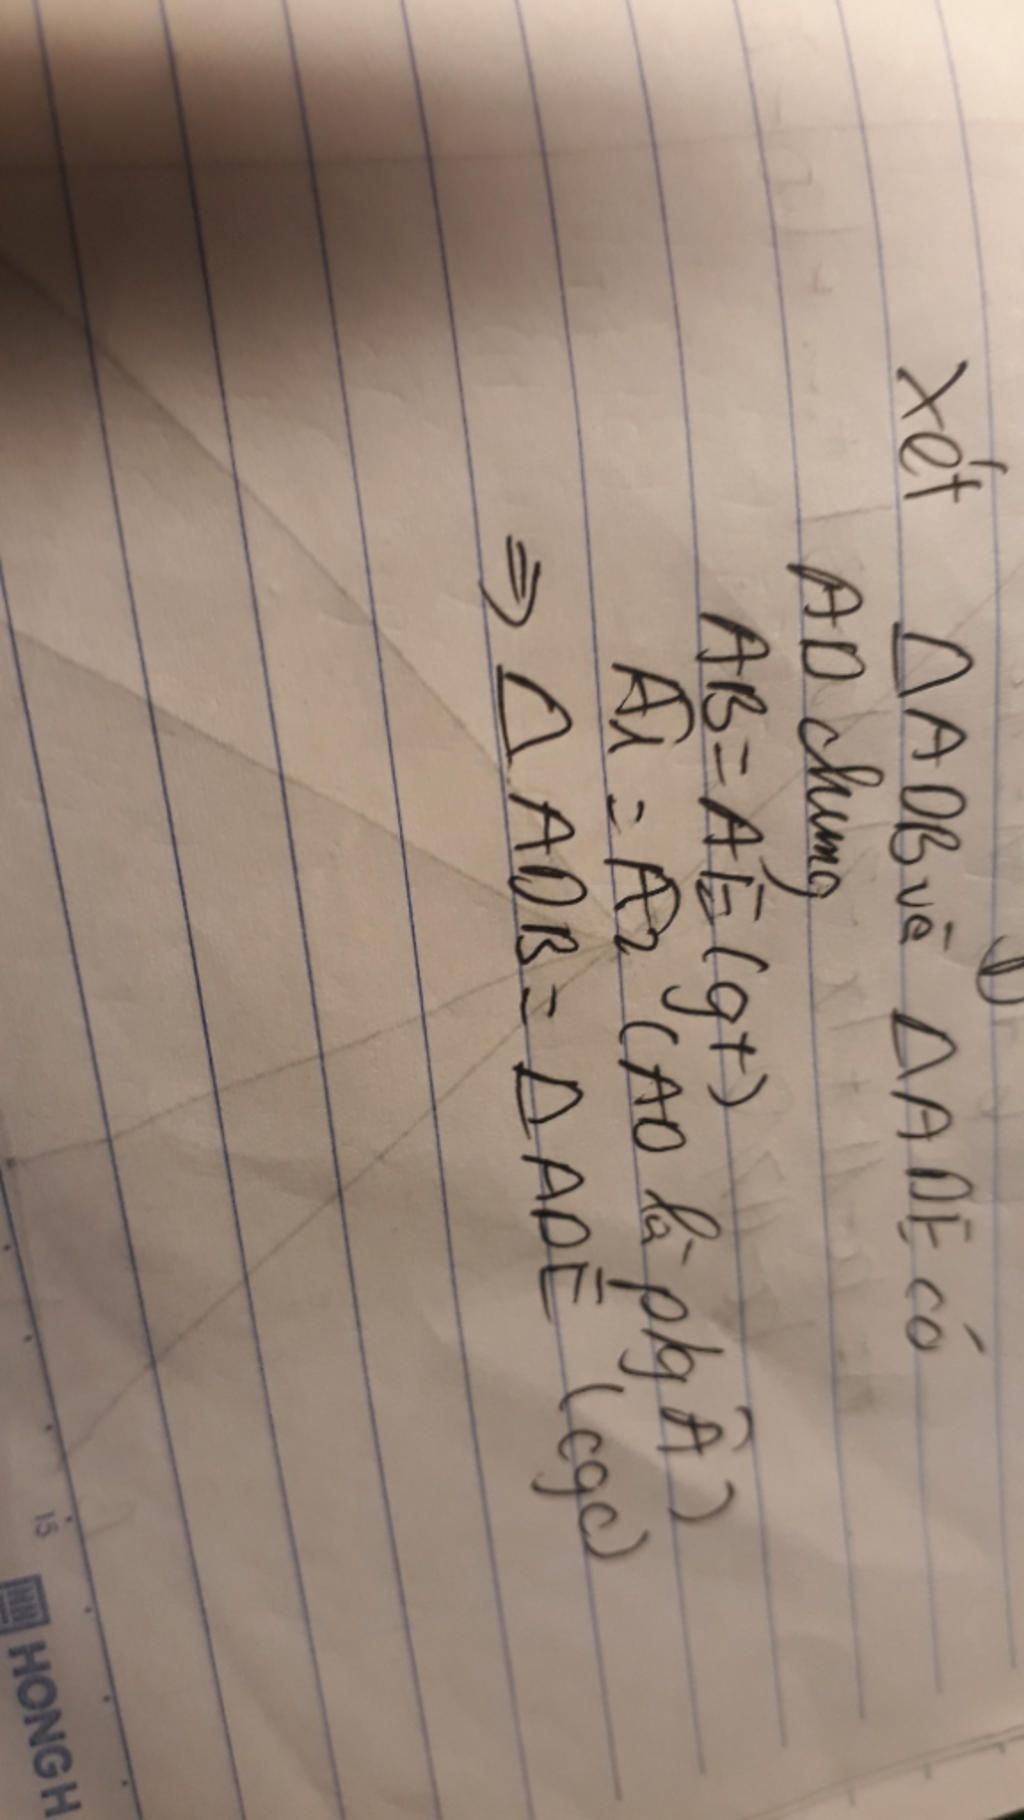 Xét ΔADB và ΔADE có
AD chung
AB = AE (gt)
Â1 = Â2 (AD là phg Â)
⇒ ΔADB = ΔADE (cgc)
15
HONG H